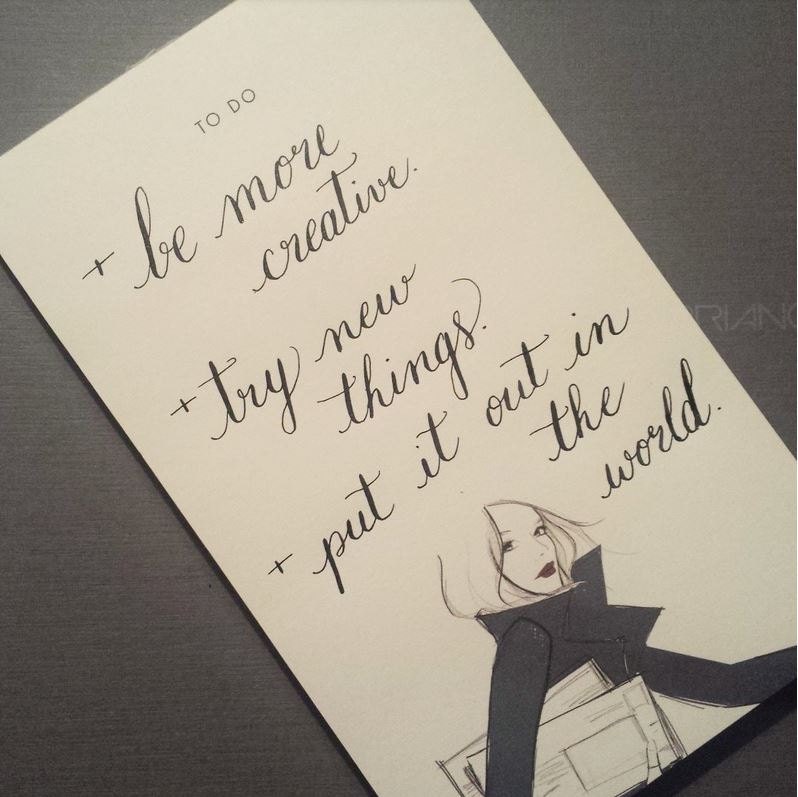 TO DO
+ be more
creative.
+ try new
things.
+ put it out in
the
world.